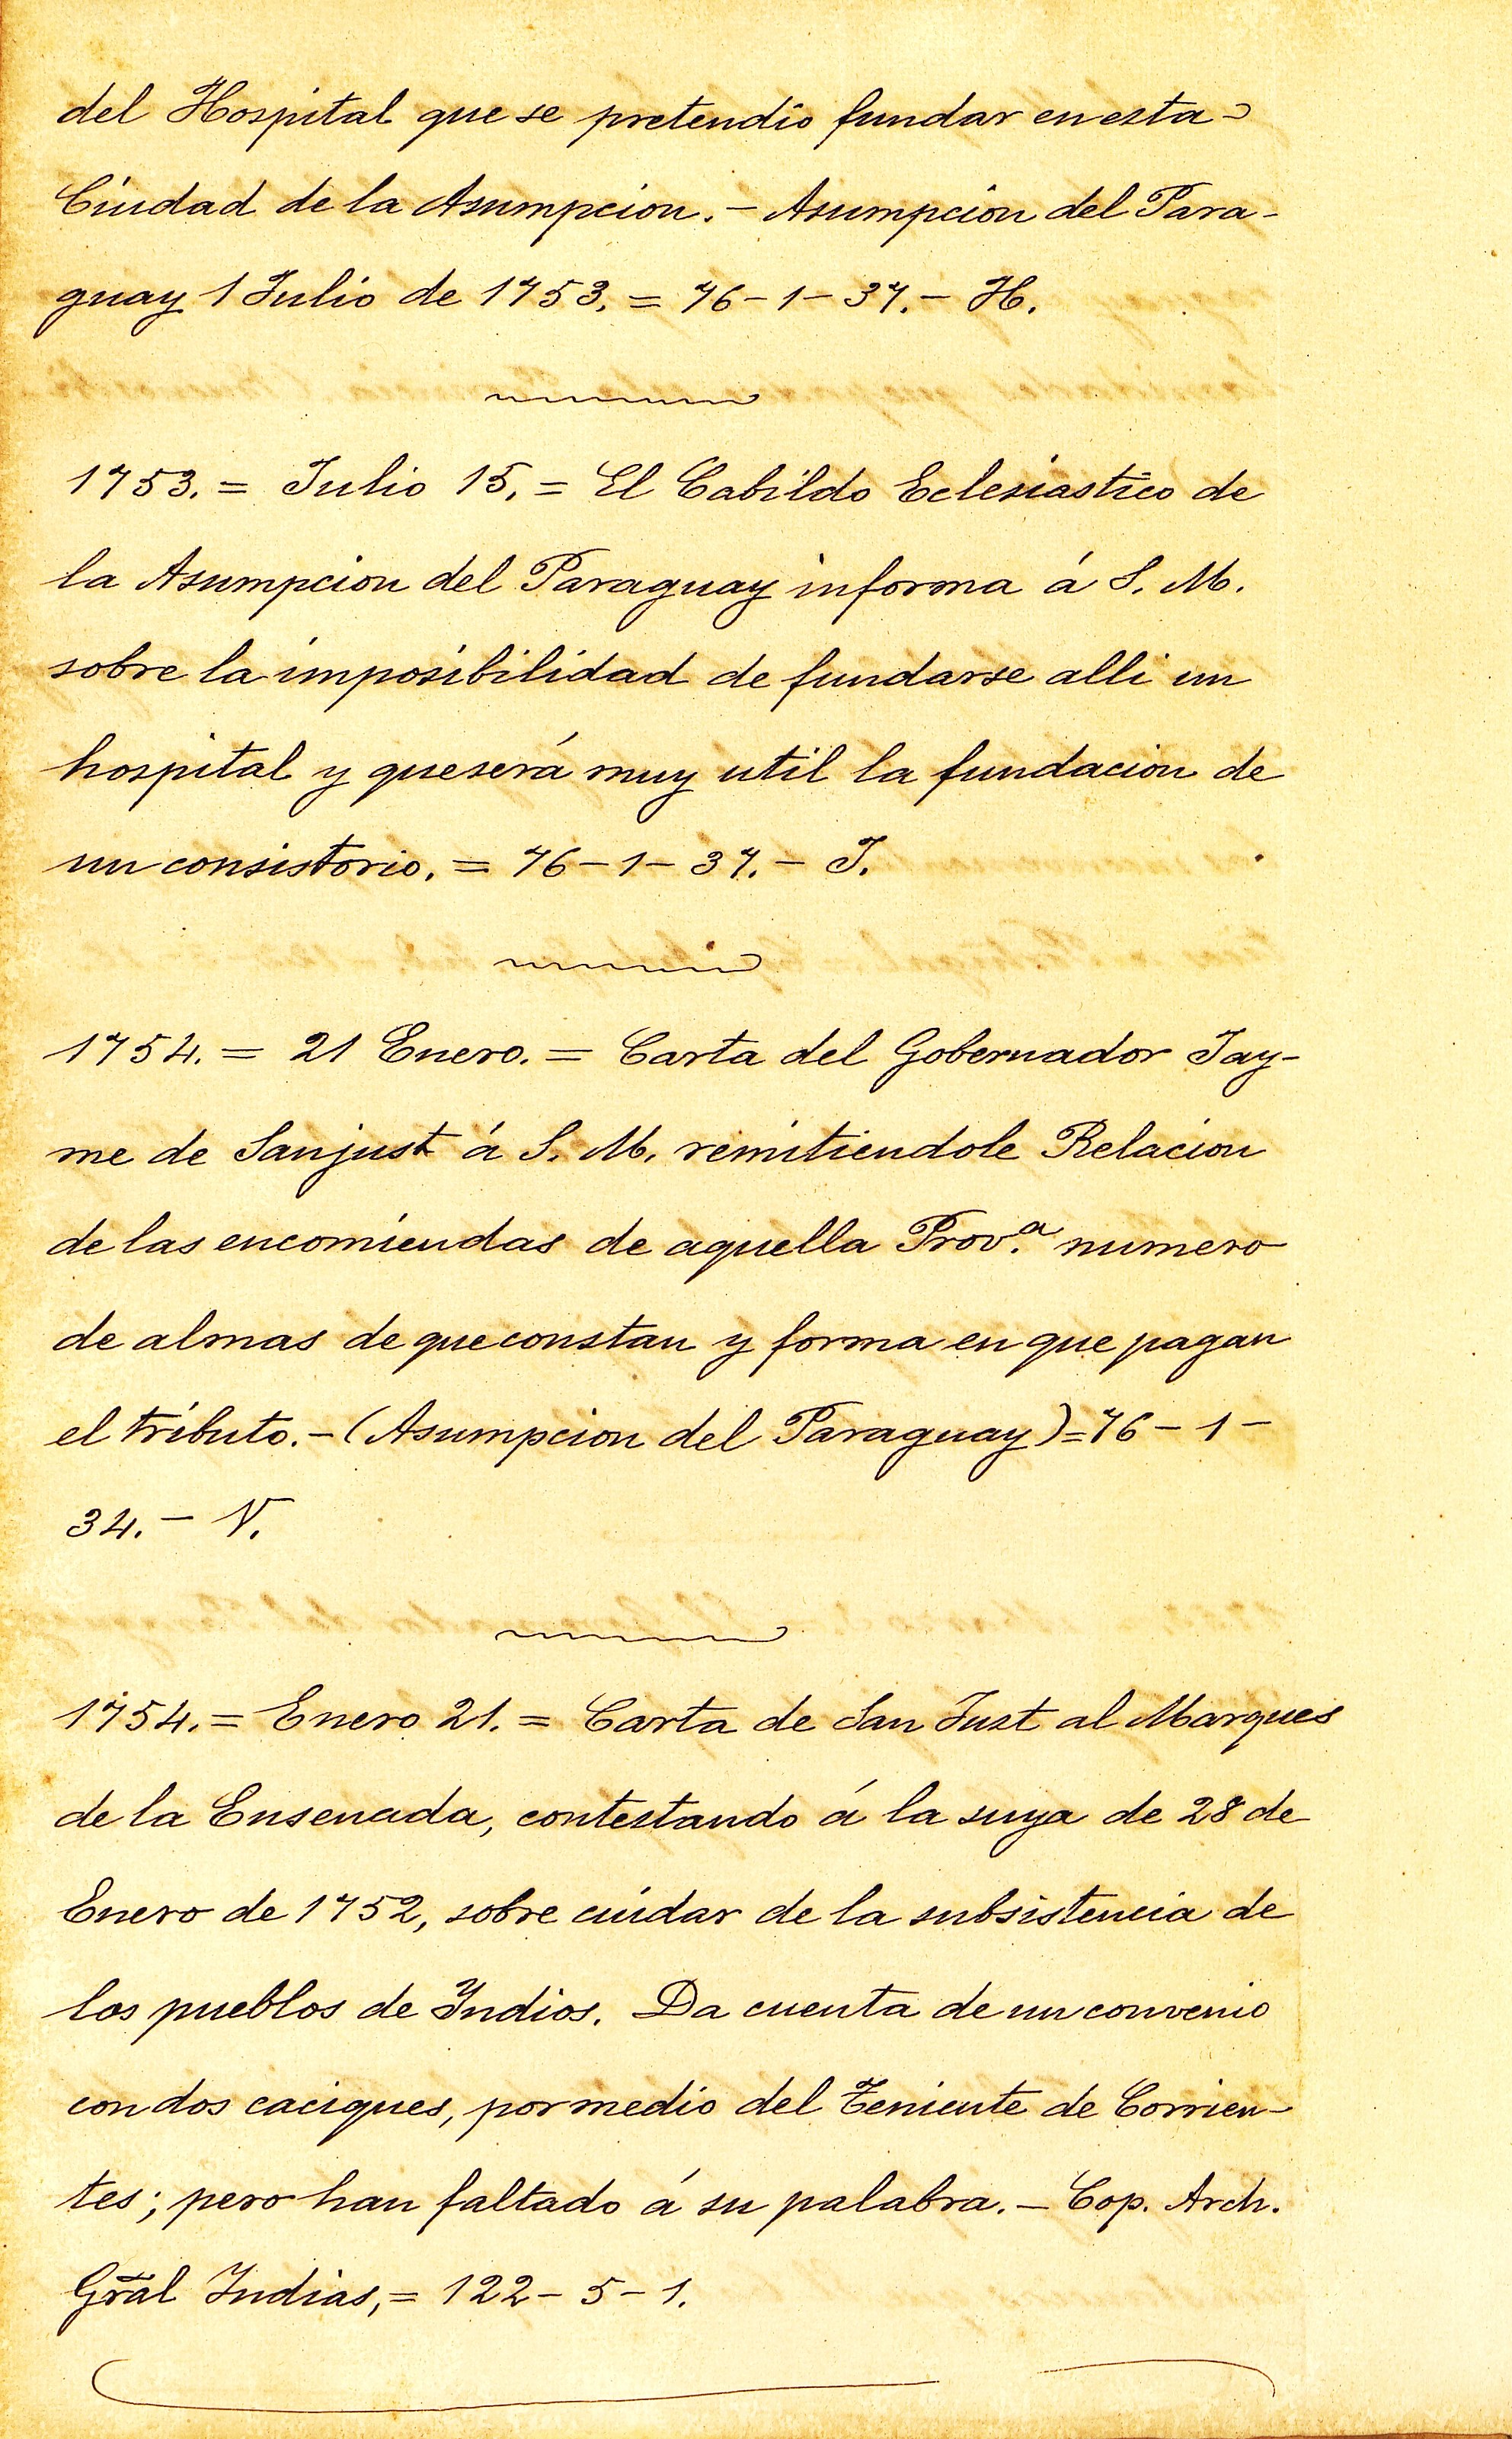 del Hospital que se pretendio fundar en esta
Ciudad de la Asumpcion. - Asumpcion del Para-
guay 1 Julio de 1753. = 76 - 1 - 37. - H.
1753. = Julio 15. = El Cabildo Eclesiastico de
la Asumpcion del Paraguay informa á S. M.
sobre la imposibilidad de fundarse alli un
hospital y que será muy util la fundacion de
un consistorio. = 76 - 1 - 37. - I.
1754. = 21 Enero. = Carta del Gobernador Jay-
me de Sanjust á S. M. remitiendole Relacion
de las encomiendas de aquella Prov.ª numero
de almas de que constan y forma en que pagan
el tributo. - (Asumpcion del Paraguay) = 76 - 1 -
34. - N.
1754. = Enero 21. = Carta de San Just al Marques
de la Ensenada, contestando á la suya de 28 de
Enero de 1752, sobre cuidar de la subsistencia de
los pueblos de Yndios. Da cuenta de un convenio
con dos caciques, por medio del Teniente de Corrien-
tes; pero han faltado á su palabra. - Cop. Arch.
Gr̃al Indias, = 122 - 5 - 1.